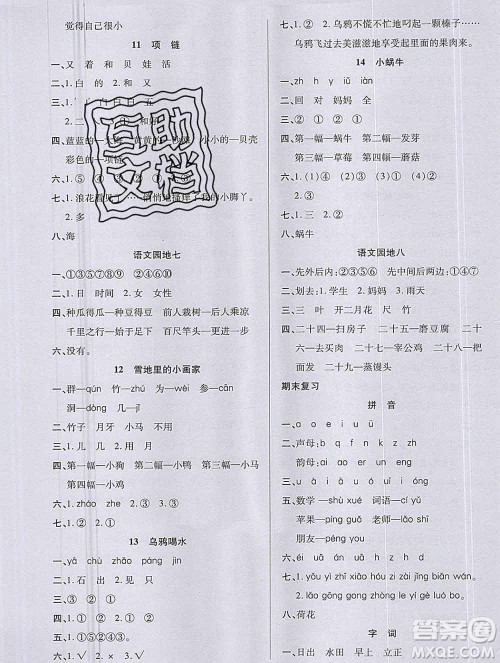 觉得自己很小
11 项 链
一、又 着 和 贝 娃 活
二、1.白 白 2.和 又
三、1. 白 的 ① ②
四、蓝蓝的 大海 黄黄的 小小的—贝壳
彩色的—项链
六、1.① 2.③ 3.④
七、1.浪花着 悄悄地撞痒了我的小脚丫。
2.多
八、海
语文园地七
一、①③⑤⑦⑧⑨ ②④⑥⑩
二、1.日 时间 2.女 女性
四、种瓜得瓜—种豆得豆 前人栽树—后人乘凉
千里之行—始于足下 百尺竿头—更进一步
六、没有。
12 雪地里的小画家
一、群—qún 竹—zhú 为—wèi 参—cān
洞—dòng 几—jǐ
二、竹子 月牙 马牛 不用
四、第一幅—小狗 第二幅—小鸡 第三幅—小马
第四幅—小鸭
六、1.zháo zhe 2.③ 3.④
七、1.② 2.① ③
13 乌鸦喝水
一、yā chù zhī jìn
二、1.石 出 2.只 可 是
三、③ ① ② ①
六、1.② 2.①
七、1.① ② 2.乌鸦不慌不忙地叼起一颗榛子……
乌鸦飞过去美滋滋地享受起里面的果肉来。
14 小蜗牛
一、zh y iǔ iàn
二、回 对 妈妈 全
四、第一幅—蜗牛 第二幅—发芽
第三幅—草莓 第四幅—蘑菇
六、1.① 2.② 3.①
七、1.三 2.② ①
八、小蜗牛
语文园地八
一、先外后内:①③ 先中间后两边:②④
二、1.划去:① 2.妈妈 3.雨天
三、三 叶 开二月花 尺 竹
四、二十四—扫房子 二十五—磨豆腐 二十六
—去买肉 二十七—宰公鸡 二十八—把
面发 二十九—蒸馒头
期末复习
拼 音
一、a o e i u ü
二、声母:b d p q
韵母:ai ie ui ei
三、ao iu er un eng
五、数学—shù xué 词语—cí yǔ
苹果—píng guǒ 老师—lǎo shī
朋友—péng you
六、②①③
七、1.yōu yì shì yǒu yuè yě yī yǔ
2.láo gōng gong zhǐ lóng dēng lǒng
八、荷花
字 词
一、日出 水田 早上 立正